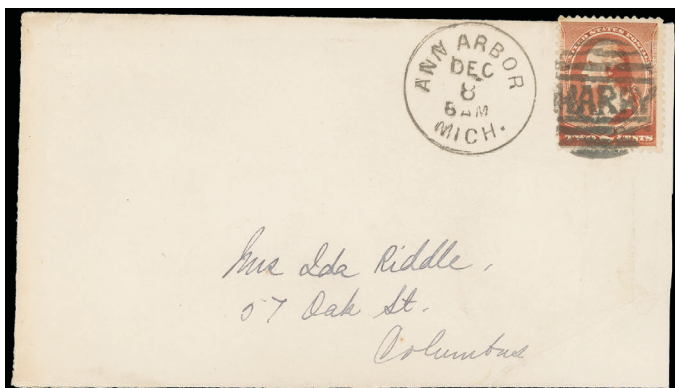 ANN ARBOR
DEC
8
MICH.
UNITED STATES POSTAGE
HARRY
CENTS
Mrs Ida Riddle,
57 Oak St.
Columbus